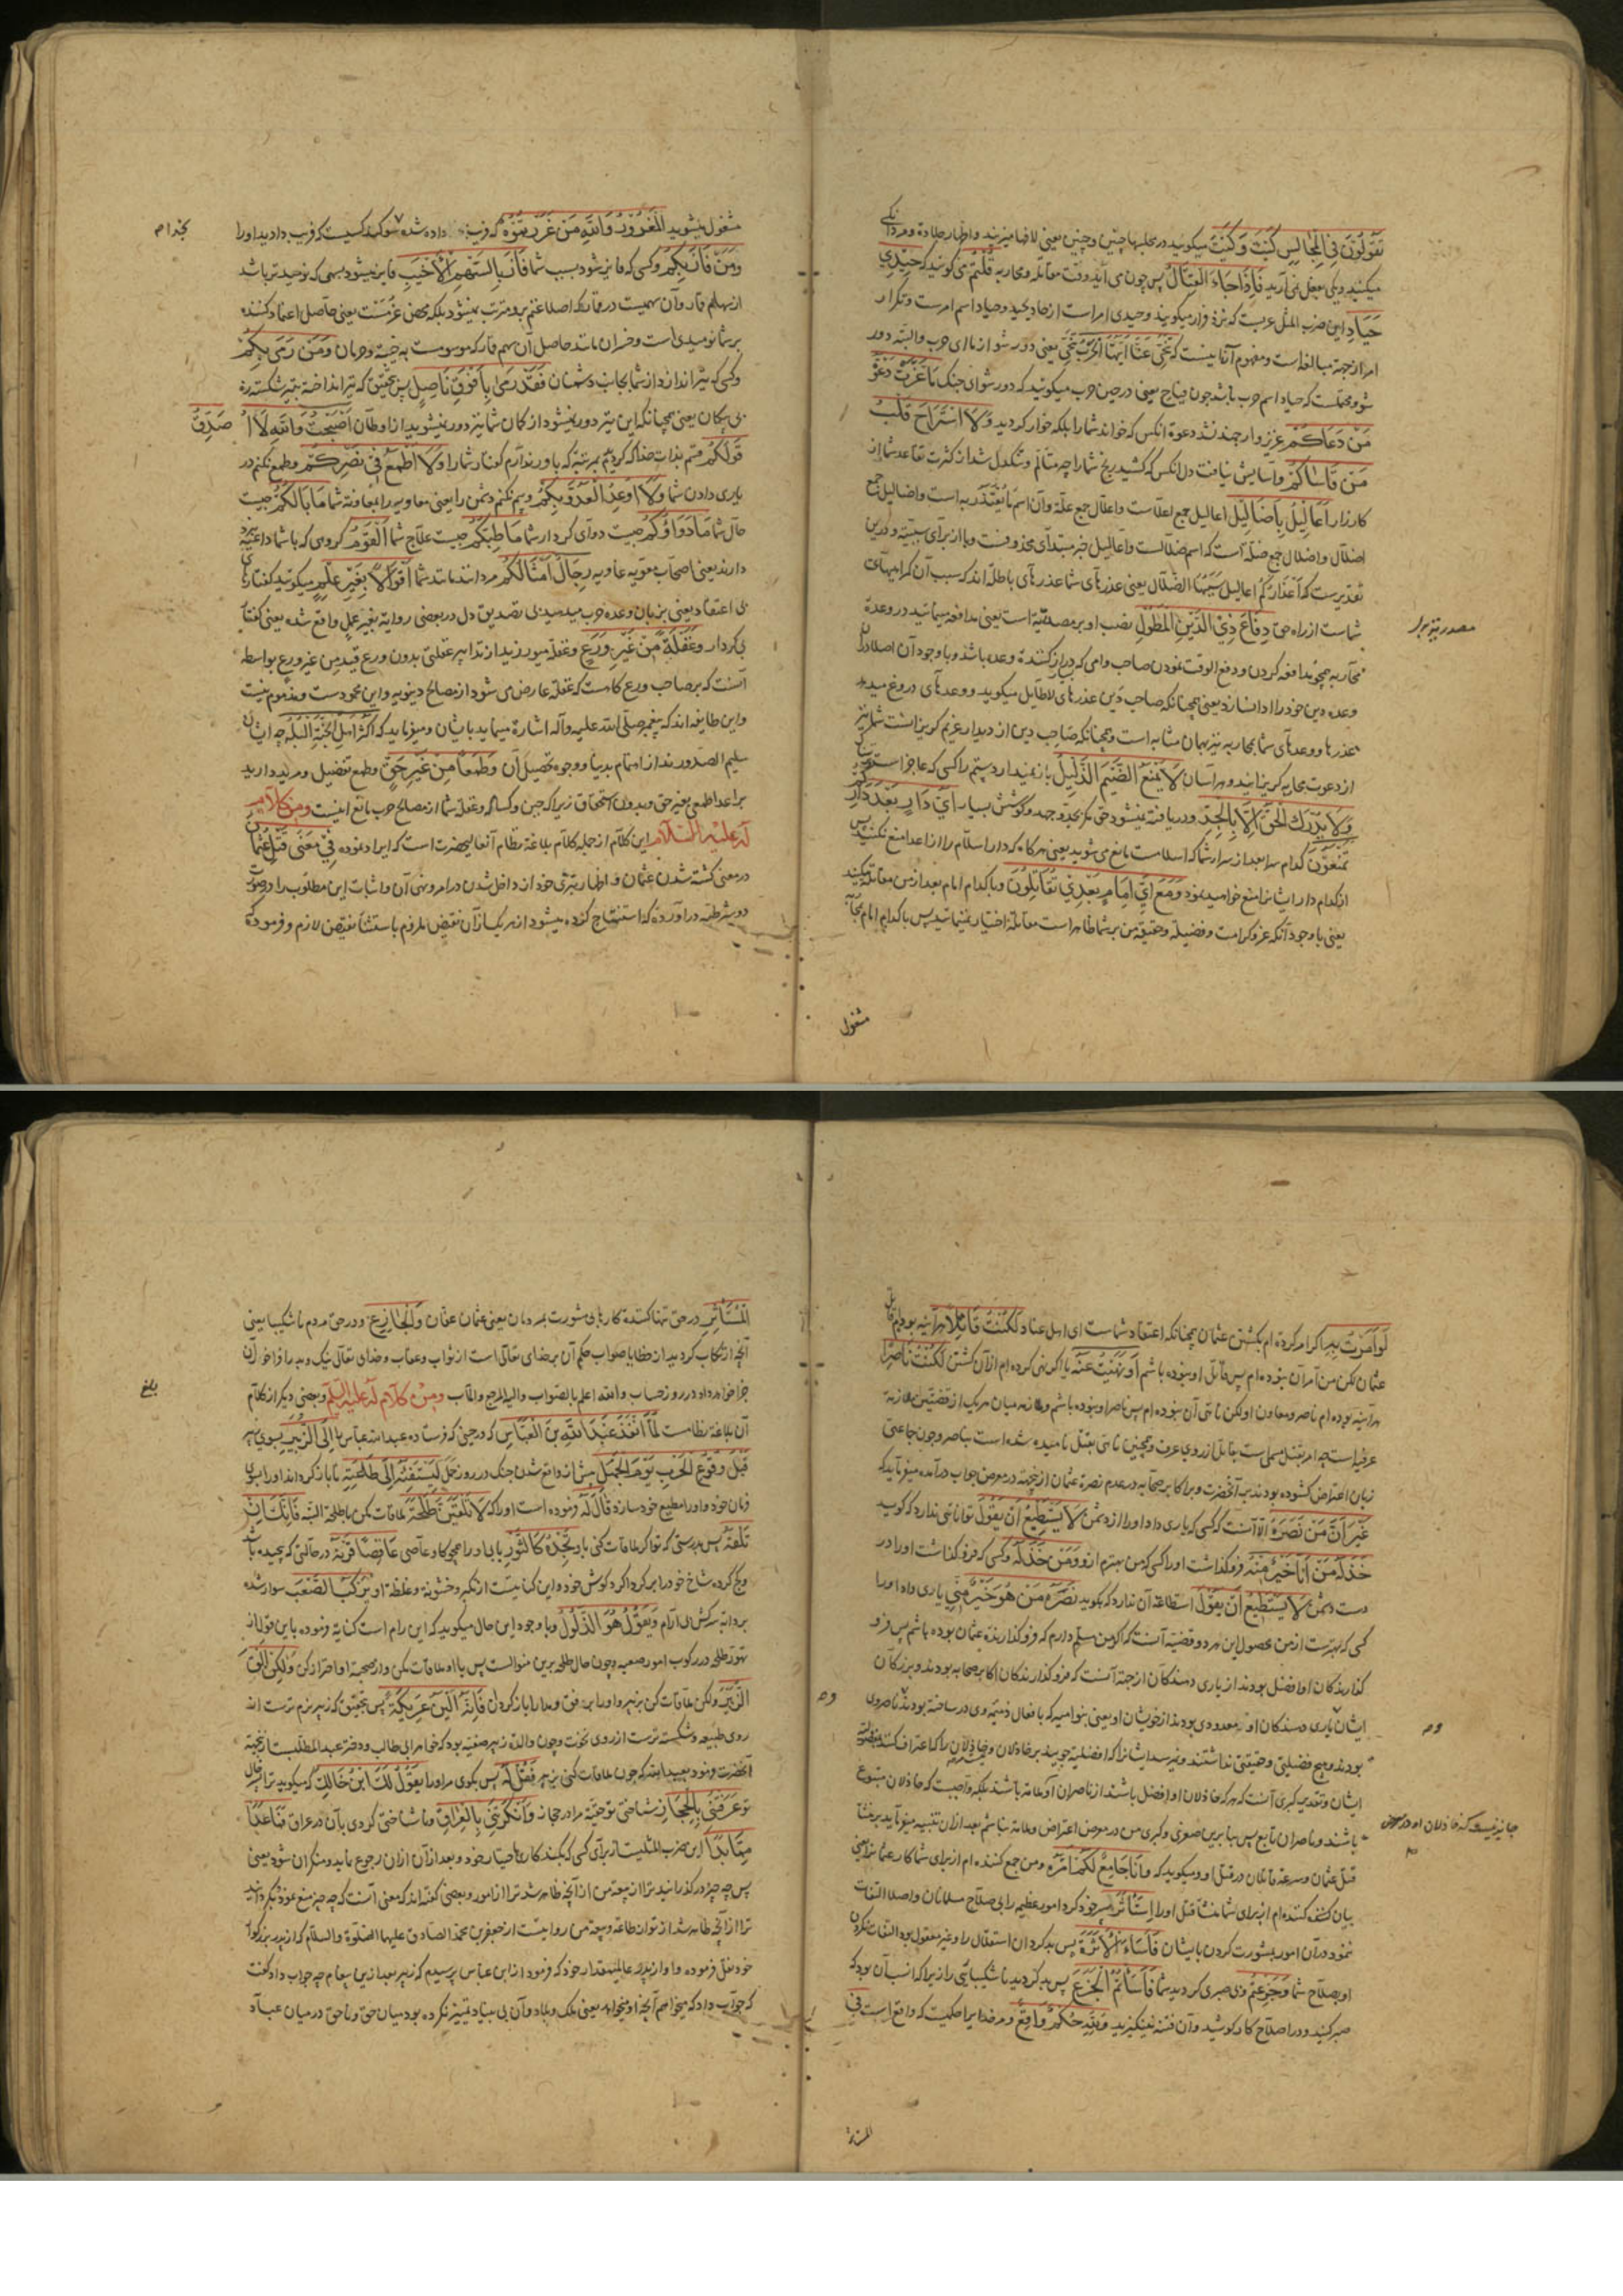 تَقُولُونَ فِي الْمَجَالِسِ كَيْتَ وَكَيْتَ میگویید در مجلسها چنین و چنین یعنی لافها میزنید و اظهار جلادة و مردانگی
میکنید و یکی بفعل نمی آرید فَإِذَا جَاءَ الْقِتَالُ پس چون می آید وقت مقاتله و محاربه قُلْتُمْ می گویید که حِيدِي
حَيَادِ این ضرب المثل عربست که نزد فرار میگویند و حیدی امر است از حاد یحید و حیاد اسم امرست و تکرار
امر از جهة مبالغه است و مفهوم آن اینست که تَنَحِّي عَنَّا أَيَّتُهَا الْحَرْبُ یعنی دور شو از ما ای حرب و البته دور
شو و محتملست که حیاد اسم حرب باشد چون فیاح یعنی در حین حرب میگویید که دور شو ای جنک مَا عَزَّتْ دَعْوَةُ
مَنْ دَعَاكُمْ عزیز و ارجمند نشد دعوة آنکس که خواند شما را بلکه خوار کردید وَلَا اسْتَرَاحَ قَلْبُ
مَنْ قَاسَاكُمْ و آسایش نیافت دل آنکس که کشید رنج شما را چه متالم و تنکدل شد از کثرت تقاعد شما از
کارزار أَعَالِيلُ بِأَضَالِيلَ اعالیل جمع اعلالست و اعلال جمع علة و آن اسم مَا يُعْتَذَرُ به است و اضالیل جمع
اضلال و اضلال جمع ضلة است که اسم ضلالست و اعالیل خبر مبتدای محذوفست و با از برای سببیة و درین
تقدیرست که أَعْذَارُكُمْ اعالیل سَبَبُهَا الضَّلَال یعنی عذرهای شما عذرهای باطله اند که سبب آن گمراهیهای
شماست از راه حق دِفَاعَ ذِي الدَّيْنِ الْمَطُولِ نصب او بر مصدریة است یعنی مدافعه میمانید در وعدة
محاربه همچو مدافعه کردن و دفع الوقت نمودن صاحب وامی که دراز کننده وعده باشد و با وجود آن اصلا در
وعده دین خود را ادا نسازد یعنی همچنانکه صاحب دین عذرهای لاطایل میگوید و وعدهای دروغ میدهد
عذرها و وعدهای شما بمحاربه نیز بهمان مشابه است و همچنانکه صاحب دین از دیدار غریم گریزانست شما نیز
از دعوت محاربه گریزانید و هراسان لَا يَمْنَعُ الضَّيْمَ الذَّلِيلُ باز نمیدارد ستم را کسی که عاجز است
وَلَا يُدْرَكُ الْحَقُّ إِلَّا بِالْجِدِّ و دریافته نمیشود حق مکر بجد و جهد و کوشش بسیار أَيَّ دَارٍ بَعْدَ دَارِكُمْ
تَمْنَعُونَ کدام سرا بعد از سرای شما که اسلامست مانع می شوید یعنی هرکاه که دار اسلام را از اعدا منع نکنید پس
از کدام دار ایشانرا منع خواهید نمود وَمَعَ أَيِّ إِمَامٍ بَعْدِي تُقَاتِلُونَ و با کدام امام بعد از من مقاتله میکنید
یعنی با وجود آنکه عز و کرامت و فضیلة و حقیقة من بر شما ظاهر است مقاتله اختیار نمینمایید پس با کدام امام بمحاربه
مشغول
مشغول میشوید الْمَغْرُورُ وَاللَّهِ مَنْ غَرَرْتُمُوهُ که فریب داده شده سوکند کسیست که فریب دادید او را
وَمَنْ فَازَ بِكُمْ و کسی که فایز شود بسبب شما فَازَ بِالسَّهْمِ الْأَخْيَبِ فایز میشود بسهمی که نومیدتر باشد
از سهام قمار و آن سهمیست در قمار که اصلا غنم برو مترتب نمیشود بلکه محض غرمست یعنی حاصل اعتماد کننده
بر شما نومیدی است و خسران مانند حاصل آن سهم قمار که موسومست به خیبة و حرمان وَمَنْ رَمَى بِكُمْ
و کسی که تیر اندازد از شما بجانب دشمنان فَقَدْ رَمَى بِأَفْوَقَ نَاصِلٍ پس بتحقیق که تیر انداخته بتیر شکسته
بی پیکان یعنی همچنانکه این تیر دور نمیشود از کمان شما نیز دور نمیشوید از اوطان أَصْبَحْتُ وَاللَّهِ لَا أُصَدِّقُ
قَوْلَكُمْ قسم بذات خدا که کردیدم بمرتبه که باور ندارم کفتار شما را وَلَا أَطْمَعُ فِي نَصْرِكُمْ و طمع نکنم در
یاری دادن شما وَلَا أُوعِدُ الْعَدُوَّ بِكُمْ و بیم نکنم دشمن را یعنی معاویه را بمعاونة شما مَا بَالُكُمْ چیست
حال شما مَا دَوَاؤُكُمْ چیست دوای کردار شما مَا طِبُّكُمْ چیست علاج شما الْقَوْمُ گروهی که با شما داعیه
دارند یعنی اصحاب معویه رِجَالٌ أَمْثَالُكُمْ مردانند مانند شما أَقْوَالًا بِغَيْرِ عِلْمٍ میگویید کفتارهای
بی اعتقاد یعنی بزبان وعده حرب میدهید بی تصدیق دل در بعضی روایة بغیر عمل واقع شده یعنی کفتار
بی کردار وَغَفْلَةً مِنْ غَيْرِ وَرَعٍ و غفلة میورزید از تدابیر غفلتی بدون ورع قید من غیر ورع بواسطه
آنست که بر صاحب ورع گاهست که غفلة عارض می شود از مصالح دنیویه و این محمودست و مذموم نیست
و این طایفه اند که پیغمبر صلی الله علیه و آله اشارة مینماید بایشان و میفرماید که أَكْثَرُ أَهْلِ الْجَنَّةِ الْبُلْهُ چه ایشان
سلیم الصدورند از اهتمام بدنیا و وجوه تحصیل آن وَطَمَعًا مِنْ غَيْرِ حَقٍّ و طمع تفضیل و مزید دارید
بر اعدا طمعی بغیر حق و بدون استحقاق زیرا که جبن و کسالة و غفلة شما از مصالح حرب مانع اینست وَمِنْ كَلَامٍ
لَهُ عَلَيْهِ السَّلَامُ این کلام از جمله کلام بلاغة نظام آنعالیحضرت است که ایراد نموده فِي مَعْنَى قَتْلِ عُثْمَانَ
در معنی کشته شدن عثمان و اظهار تبری خود از داخل شدن در امر و نهی آن و اثبات این مطلوب را در صورت
دو شرطیه در آورده که استنتاج کرده میشود از هر یک از آن نقیض ملزوم باستثناء نقیض لازم و فرموده
لَوْ أَمَرْتُ بِهِ اکر امر کرده ام بکشتن عثمان چنانکه اعتقاد شماست ای اهل عناد لَكُنْتُ قَاتِلًا هرآینه بودم قاتل
عثمان لکن من آمر آن نبوده ام پس قاتل او نبوده باشم أَوْ نَهَيْتُ عَنْهُ یا اکر نهی کرده ام از آن کشتن لَكُنْتُ نَاصِرًا
هرآینه بوده ام ناصر و معاون او لکن ناهی آن نبوده ام پس ناصر او نبوده باشم و ملازمه میان هر یک از قضیتین ملازمه
عرفیاست چه آمر بقتل مسمی است بقاتل از روی عرف و همچنین ناهی بقتل نامیده شده است بناصر و چون جماعتی
زبان اعتراض کشوده بودند بر آنحضرت و بر اکابر صحابه در عدم نصرة عثمان از جهة در معرض جواب درآمده میفرماید که
غَيْرَ أَنَّ مَنْ نَصَرَهُ الا آنست که کسی که یاری داد او را از دشمن لَا يَسْتَطِيعُ أَنْ يَقُولَ توانائی ندارد که گوید
خَذَلَهُ مَنْ أَنَا خَيْرٌ مِنْهُ فروگذاشت او را کسی که من بهترم ازو وَمَنْ خَذَلَهُ و کسی که فروگذاشت او را در
دست دشمن لَا يَسْتَطِيعُ أَنْ يَقُولَ استطاعة آن ندارد که بگوید نَصَرَهُ مَنْ هُوَ خَيْرٌ مِنِّي یاری داد او را
کسی که بهترست از من محصول این هر دو قضیه آنست که اکر من مسلم دارم که فروگذارنده عثمان بوده باشم پس فرو
گذارندگان او افضل بودند از یاری دهندکان از جهة آنست که فروگذارندکان اکابر صحابه بودند و بزرکان
ایشان و یاری دهندکان او معدودی بودند از خویشان او یعنی بنو امیه که بافعال ذمیمه وی در ساخته بودند
بودند و هیچ فضیلتی و حقیقتی نداشتند
ایشان و تقدیر کبری آنست که هرکه خاذلان او افضل باشند از ناصران او ملامة باشند بلکه واجبست که خاذلان متبوع
باشند و ناصران تابع پس بنابرین صغری و کبری من در معرض اعتراض و ملامة نباشم بعد از آن تنبیه میفرماید بر منشأ
قتل عثمان و سرعة قاتلان در قتل او و میگوید که وَأَنَا جَامِعٌ لَكُمْ أَمْرَهُ و من جمع کننده ام از برای شما کار عثمانرا یعنی
بیان کننده ام از برای شما منشأ قتل او را اسْتَأْثَرَ بسر خود کرد امور عظیم را بی صلاح مسلمانان و اصلا التفات
ننمود در آن امور بمشورت کردن بایشان فَأَسَاءَ الْأَثَرَةَ پس بد کرد آن استقلال را و غیر معقول بود التفات نکردن
او بصلاح شما وَجَزِعْتُمْ و بی صبری کردید شما فَأَسَأْتُمُ الْجَزَعَ پس بد کردید ناشکیبائی را زیرا که انسب آن بود که
صبر کنید و در اصلاح کار کوشید و آن فتنه نینکیزید وَلِلَّهِ حُكْمٌ وَاقِعٌ و مر خدایرا حکمیست که واقع است فِي
الْمُسْتَأْثِرِ در حق تنها کننده کارها بی مشورت مردمان یعنی عثمان عفان وَالْجَازِعِ و در حق مردم ناشکیبا یعنی
آنچه ارتکاب کردید از خطا یا صواب حکم آن بر خدای تعالی است از ثواب و عقاب و خدای تعالی نیک و بد را فراخور آن
جزا خواهد داد در روز حساب والله اعلم بالصواب والیه المرجع والمآب وَمِنْ كَلَامٍ لَهُ عَلَيْهِ السَّلَامُ و بعضی دیکر از کلام
آن بلاغة نظامست لَمَّا أَنْفَذَ عَبْدَ اللَّهِ بْنَ الْعَبَّاسِ که در حینی که فرستاده عبدالله عباس را إِلَى الزُّبَيْرِ بسوی زبیر
قَبْلَ وُقُوعِ الْحَرْبِ يَوْمَ الْجَمَلِ پیش از واقع شدن جنک در روز جمل لِيَسْتَفِيئَهُ إِلَى طَاعَتِهِ تا باز کرداند او را بسوی
فرمان خود و او را مطیع خود سازد قَالَ لَهُ فرموده است او را که لَا تَلْقَيَنَّ طَلْحَةَ ملاقات مکن با طلحة البته فَإِنَّكَ إِنْ
تَلْقَهُ پس بدرستی که تو اکر ملاقات کنی باو تَجِدْهُ كَالثَّوْرِ یابی او را همچو کاو عاصی عَاقِصًا قَرْنَهُ در حالتی که پیچیده باشد
و کج کرده شاخ خود را بر کرداکرد گوش خود و این کنایتست از تکبر و خشونة و غلظة او يَرْكَبُ الصَّعْبَ سوار شده
بر دابه سرکش بی آرام وَيَقُولُ هُوَ الذَّلُولُ و با وجود این حال میگوید که این رام است کنایة فرموده باین قول از
تهور طلحه در رکوب امور صعبه و چون حال طلحه برین منوالست پس با او ملاقات مکن و از صحبة او احتراز کن وَلَكِنِ الْقَ
الزُّبَيْرَ ولکن ملاقات کن بزبیر و او را برفق و مدارا باز کردان فَإِنَّهُ أَلْيَنُ عَرِيكَةً پس بتحقیق که زبیر نرم ترست از
روی طبیعة و شکسته ترست از روی نخوت و چون والدة زبیر صفیه بود که خواهر ابی طالب و دختر عبدالمطلبست ازینجهة
آنحضرت فرمود بعبدالله که چون ملاقات کنی بزبیر فَقُلْ لَهُ پس بگوی مر او را يَقُولُ لَكَ ابْنُ خَالِكَ که میکوید ترا پسر خال
تو عَرَفْتَنِي بِالْحِجَازِ شناختی تو حقیة مرا در حجاز وَأَنْكَرْتَنِي بِالْعِرَاقِ و ناشناختی کردی بآن در عراق فَمَا عَدَا
مِمَّا بَدَا این ضرب المثلیست از برای کسی که بکند کاری باختیار خود و بعد از آن از آن رجوع نماید و منکر آن شود یعنی
پس چه چیز در گذرانید ترا از بیعة من از آنچه ظاهر شد ترا از امور و بعضی کفته اند که معنی آنست که چه چیز منع نمود و بگردانید
ترا از آنچه ظاهر شد از تو از طاعة و بیعة من روایتست از جعفر بن محمد الصادق علیهما الصلوة والسلام که از پدر بزرکوار
خود نقل فرموده و او از پدر عالیمقدار خود که فرمود از ابن عباس پرسیدم که زبیر بعد ازین پیغام چه جواب داد گفت
که جواب داد که میخواهم آنچه او میخواهد یعنی ملک و بلاد و آن بی بنیاد تمییز نکرده بود میان حق و ناحق در میان عباد